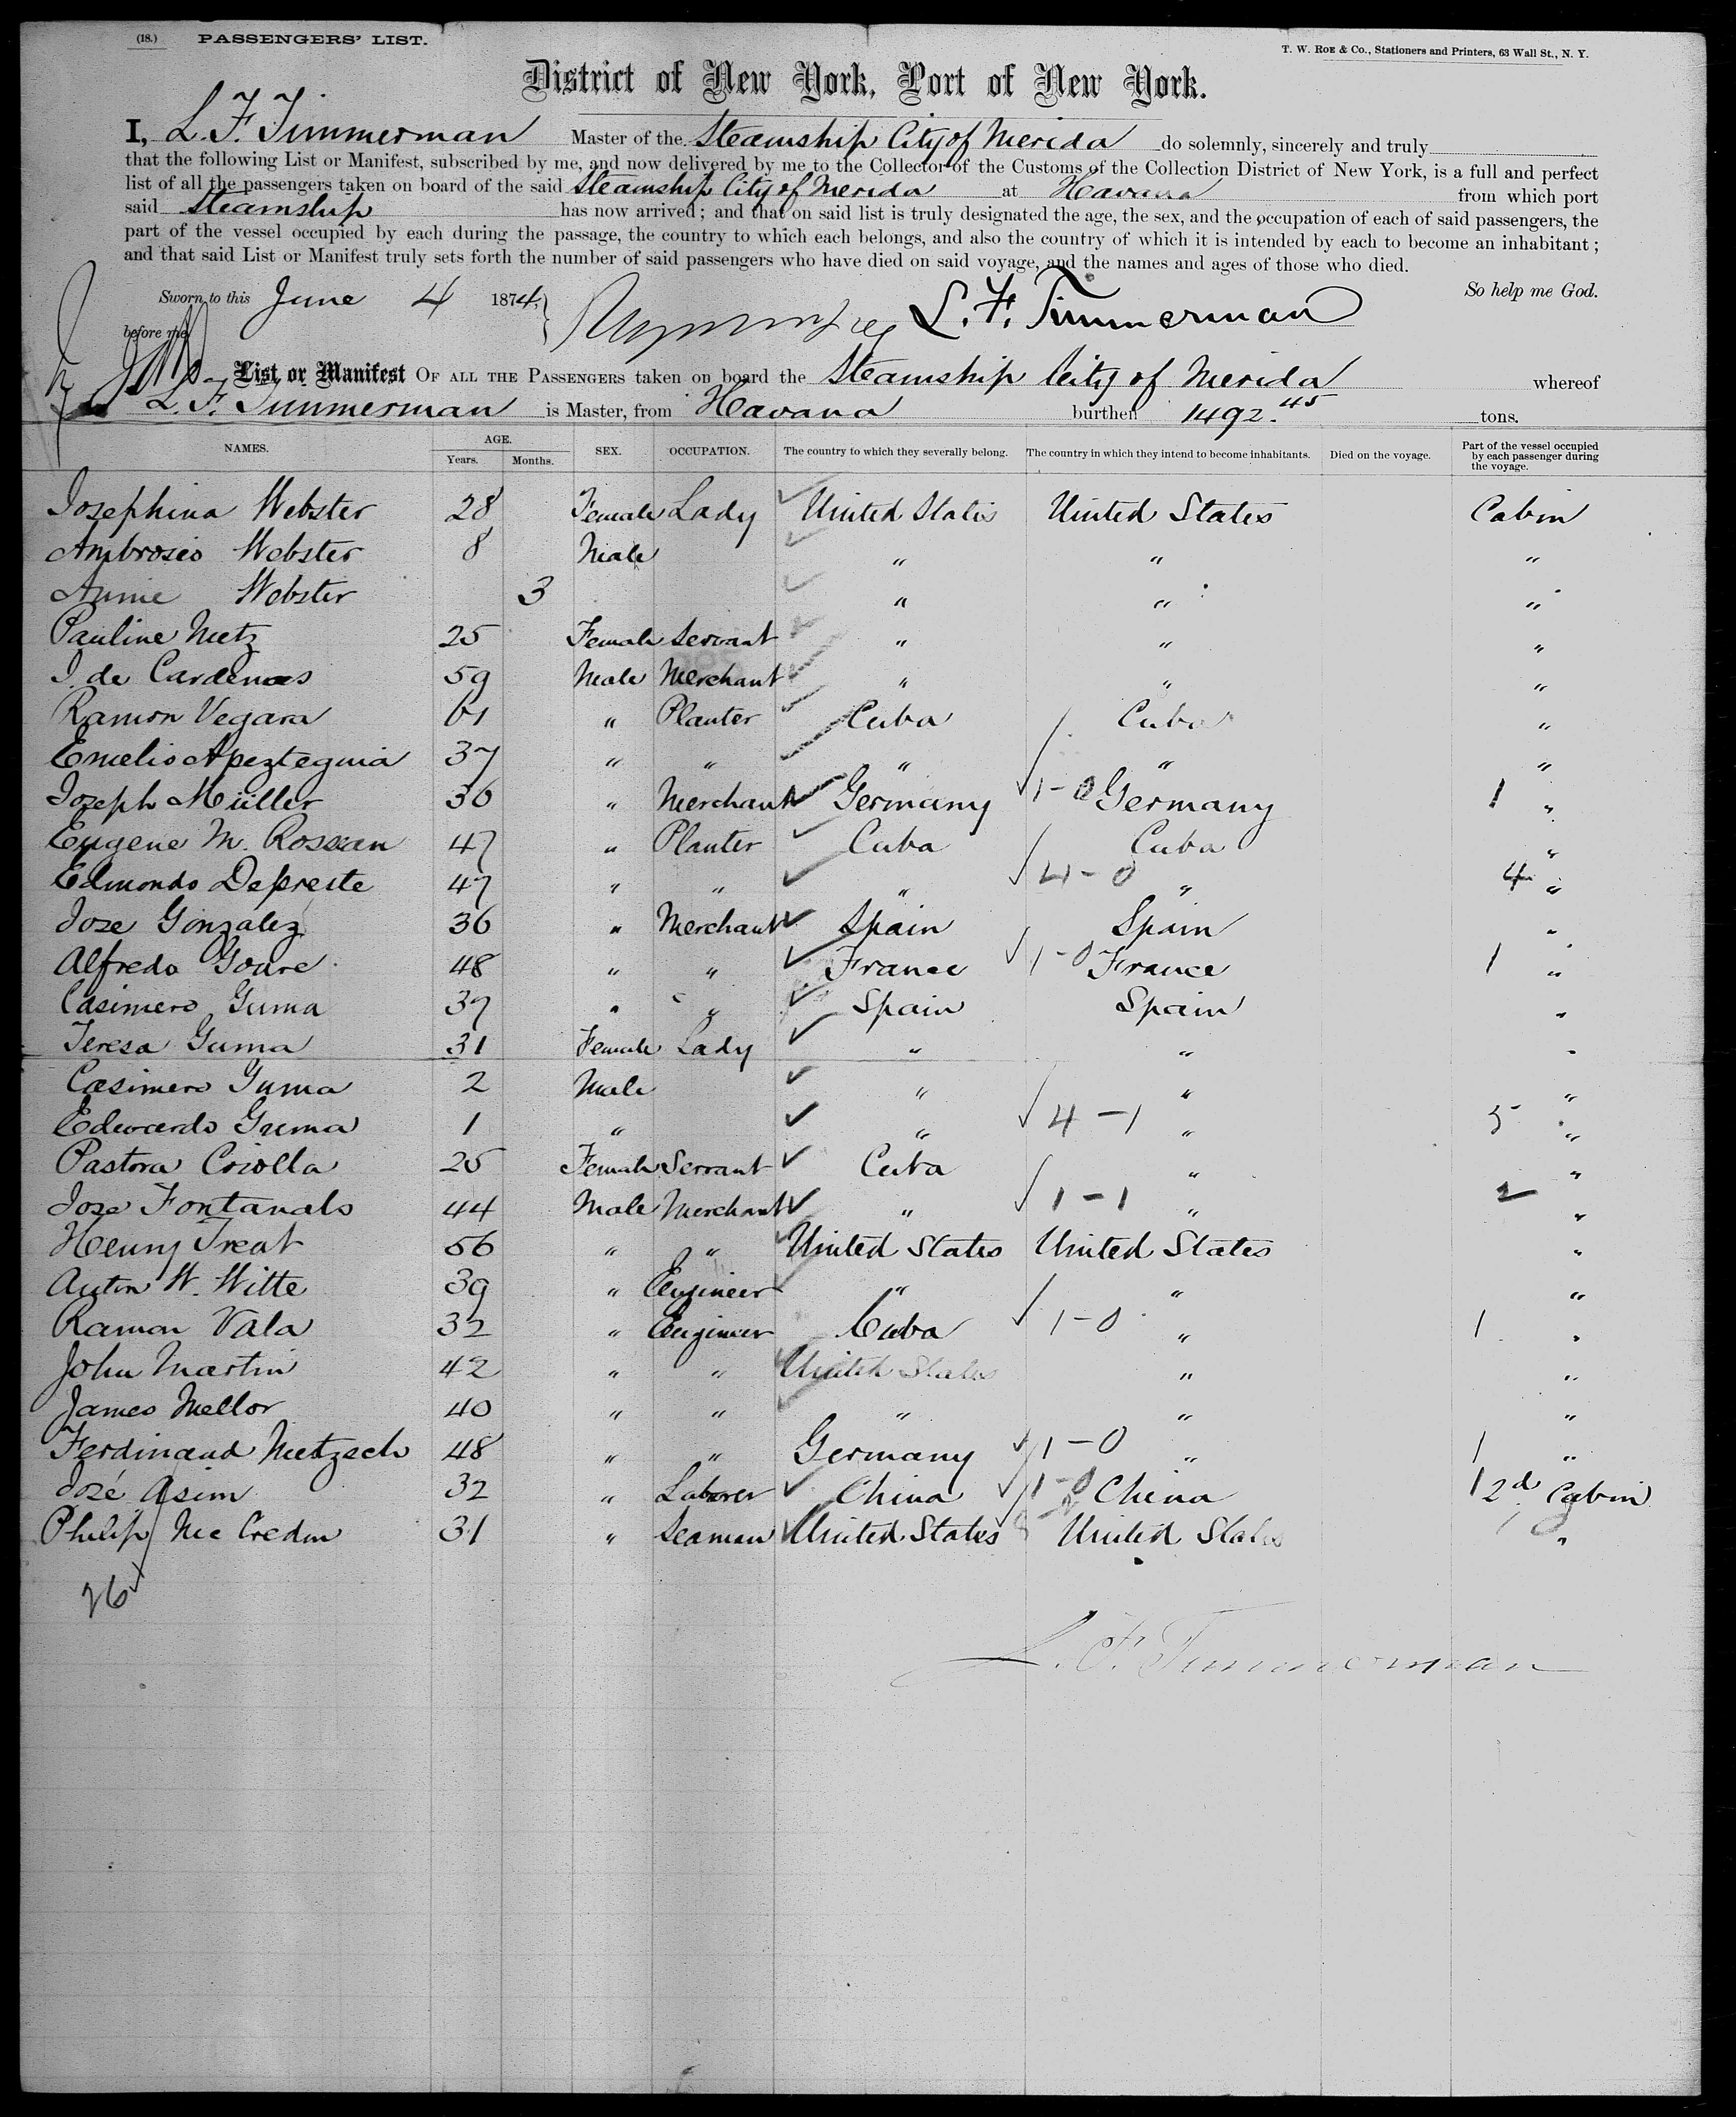 (18.) PASSENGERS' LIST.
T. W. Roe & Co., Stationers and Printers, 63 Wall St., N. Y.
District of New York, Port of New York.
I, L. F. Timmerman Master of the Steamship City of Merida do solemnly, sincerely and truly
that the following List or Manifest, subscribed by me, and now delivered by me to the Collector of the Customs of the Collection District of New York, is a full and perfect
list of all the passengers taken on board of the said Steamship City of Merida at Havana from which port
said Steamship has now arrived; and that on said list is truly designated the age, the sex, and the occupation of each of said passengers, the
part of the vessel occupied by each during the passage, the country to which each belongs, and also the country of which it is intended by each to become an inhabitant;
and that said List or Manifest truly sets forth the number of said passengers who have died on said voyage, and the names and ages of those who died.
So help me God.
Sworn to this June 4 1874,
L. F. Timmerman
before me
List or Manifest Of all the Passengers taken on board the Steamship City of Merida whereof
L. F. Timmerman is Master, from Havana burthen 1492.45 tons.
NAMES. AGE. Years. Months. SEX. OCCUPATION. The country to which they severally belong. The country in which they intend to become inhabitants. Died on the voyage. Part of the vessel occupied by each passenger during the voyage.
Josephina Webster 28 Female Lady United States United States Cabin
Ambrosio Webster 8 Male " " "
Annie Webster 3 " " "
Pauline Metz 25 Female Servant " " "
J. de Cardenas 59 Male Merchant " " "
Ramon Vegara 61 " Planter Cuba Cuba "
Emelio Apezteguia 37 " " " " "
Joseph Müller 36 " Merchant Germany 1-0 Germany 1 "
Eugene M. Rossian 47 " Planter Cuba Cuba "
Edmondo Depreste 47 " " " 4-0 " 4 "
Jose Gonzalez 36 " Merchant Spain Spain "
Alfredo Goure 48 " " France 1-0 France 1 "
Casimero Guma 37 " " Spain Spain "
Teresa Guma 31 Female Lady " " "
Casimero Guma 2 Male " " "
Edwardo Guma 1 " " 4-1 " 5 "
Pastora Criolla 25 Female Servant Cuba " "
Jose Fontanals 44 Male Merchant " 1-1 " 2 "
Henry Treat 56 " " United States United States "
Anton W. Witte 39 " Engineer " " "
Ramon Vala 32 " Engineer Cuba 1-0 " 1 "
John Martin 42 " " United States " "
James Mellor 40 " " " " "
Ferdinand Mietzsch 48 " " Germany 1-0 " 1 "
José Asim 32 " Laborer China 1-0 China 1 2d Cabin
Philip McCredin 31 " Seaman United States United States "
26
L. F. Timmerman